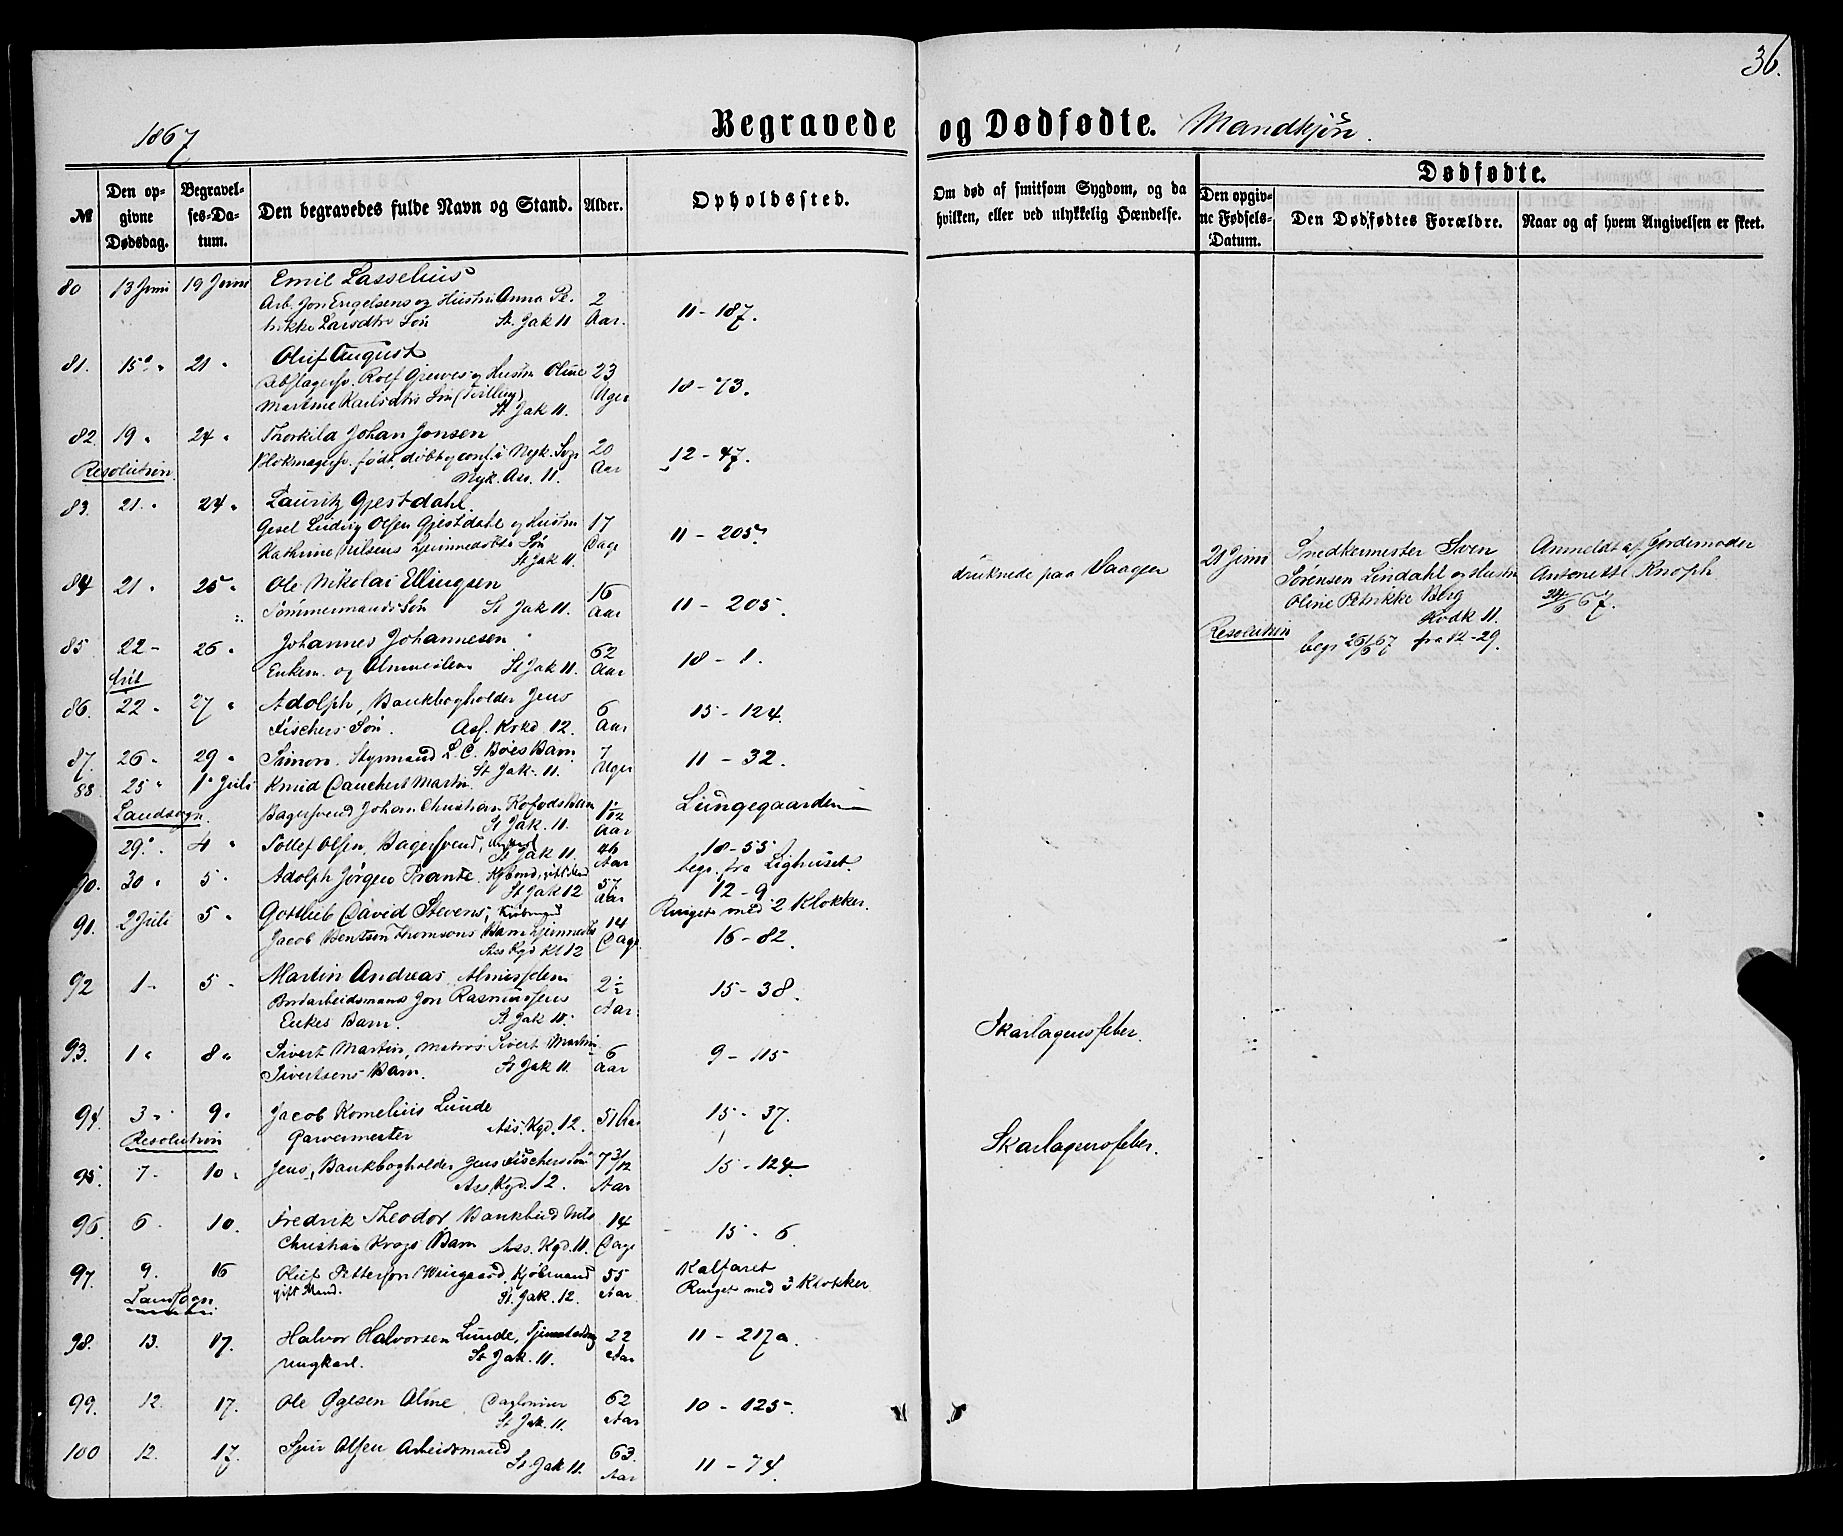 36.
1867
Begravede og Dødfødte. Mandkjøn.
№
Den opgivne Dødsdag.
Begravelses-Datum.
Den begravedes fulde Navn og Stand.
Alder.
Opholdssted.
Om død af smitsom Sygdom, og da hvilken, eller ved ulykkelig Hændelse.
Dødfødte.
Den opgivne Fødsels-Datum.
Den Dødfødtes Forældre.
Naar og af hvem Angivelsen er skeet.
80 13 Juni 19 Juni Emil Lasselius
Arb. Jon Engelsens og Hustru Anna Pe- 2
trikke Larsdtrs Søn St. Jak 11 Aar. 11 - 187.
81. 15 " 21 " Oluf August
Rolf Grieves og Hustru Oline 23
Martine Karlsdtrs Søn (Tvilling) Uger 18 - 73.
St. Jak 11.
82. 19 " 24 " Thorkild Johan Jonsen
Resolution. Blokmagersv. født, døbt og conf. i Nyk. Sogn 20 Aar 12 - 47.
Nyk. Ass. 11.
83. 21. " 24 " Lauritz Gjestdahl.
Gesel Ludvig Olsen Gjestdahl og Hustru 17
Kathrine Nilsens hjemmedøbte Søn Dage 11 - 205
St Jak 11.
84 21 " 25 " Ole Nikolai Ellingsen 16
Tømmermands Søn St Jak 11. Aar 11 - 205. druknede paa Vaagen
21 Juni Snedkermester Sven Anmeldt af Jordemoder
Sørensen Lindahl og Hustru Antonette Knoph
Oline Petrikke Berg 24/6 67.
Kodk 11.
Resolution begr 26/6 67 fra 12 - 29.
85 22 - 26 " Johannes Johannesen 62
frit Enkem. og Almueslem St Jak 11. Aar 18 - 1.
86. 22 " 27 " Adolph, Bankbogholder Jens 6
Fischers Søn. Ass. Krkd 12. Aar 15 - 124.
87. 26 " 29 " Simon. Styrmand L. C. Bøes Barn 7
St Jak. 11. Uger 11 - 32.
88 25 " 1 Juli Knud Danchert Martin
Landsogn. Bagersvend Johan Christian Kofods Barn 1 1/12 Lungegaarden
St Jak. 11. Aar
29. " 4 " Tollef Olsen, Bagersvend, 46 18 - 55
St Jak 11 Aar begr. fra Lighuset.
90. 30 " 5 " Adolph Jørgen Prante. 57 12 - 9
St Jak 12 Aar Ringet med 2 Klokker.
91. 2 Juli 5 " Gottlieb David Stevens, Kjøbmand 14
Jacob Bentsen Thomsons Barn hjemmedøbt Dage 16 - 82.
Ass Kgd Kl 12
92 1 " 5 " Martin Andreas, Almueslem
Bordarbeidsmand Jon Rasmussens 2 1/2 15 - 38.
Enkes Barn. St Jak 11. Aar
Skarlagensfeber.
93. 1 " 8 " Sivert Martin, Matros Sivert Martin 6
Sivertsens Barn. St Jak 11. Aar 9 - 115
94 3 " 9 " Jacob Kornelius Lunde 51 Aar 15 - 37.
Resolution Garvermester Ass. Kgd. 12.
Skarlagensfeber.
95. 7 " 10 " Jens, Bankbogholder Jens Fischers Søn 7 3/12
Ass. Kgd. 12. Aar 15 - 124
96. 6 " 10. Fredrik Theodor, Bankbud Nils 14
Christian Krogs Barn Ass. Kgd. 11. Dage 15 - 6
97. 9. 16 Oluf Petterson Wingaard, Kjøbmand 55 Kalfaret
Landsogn gift Mand. St. Jak. 12. Aar Ringet med 3 Klokker
98. 13. 17. Halvor Halvorsen Lunde, 22 11 - 217a
ungkarl. St Jak. 11. Aar
99. 12. 17. Ole Øgesen Alme Daglønner 62
St Jak. 11. Aar 10 - 125.
100 12. 17. Sjur Olsen Arbeidsmand 63.
St. Jak 11. Aar 11 - 74.